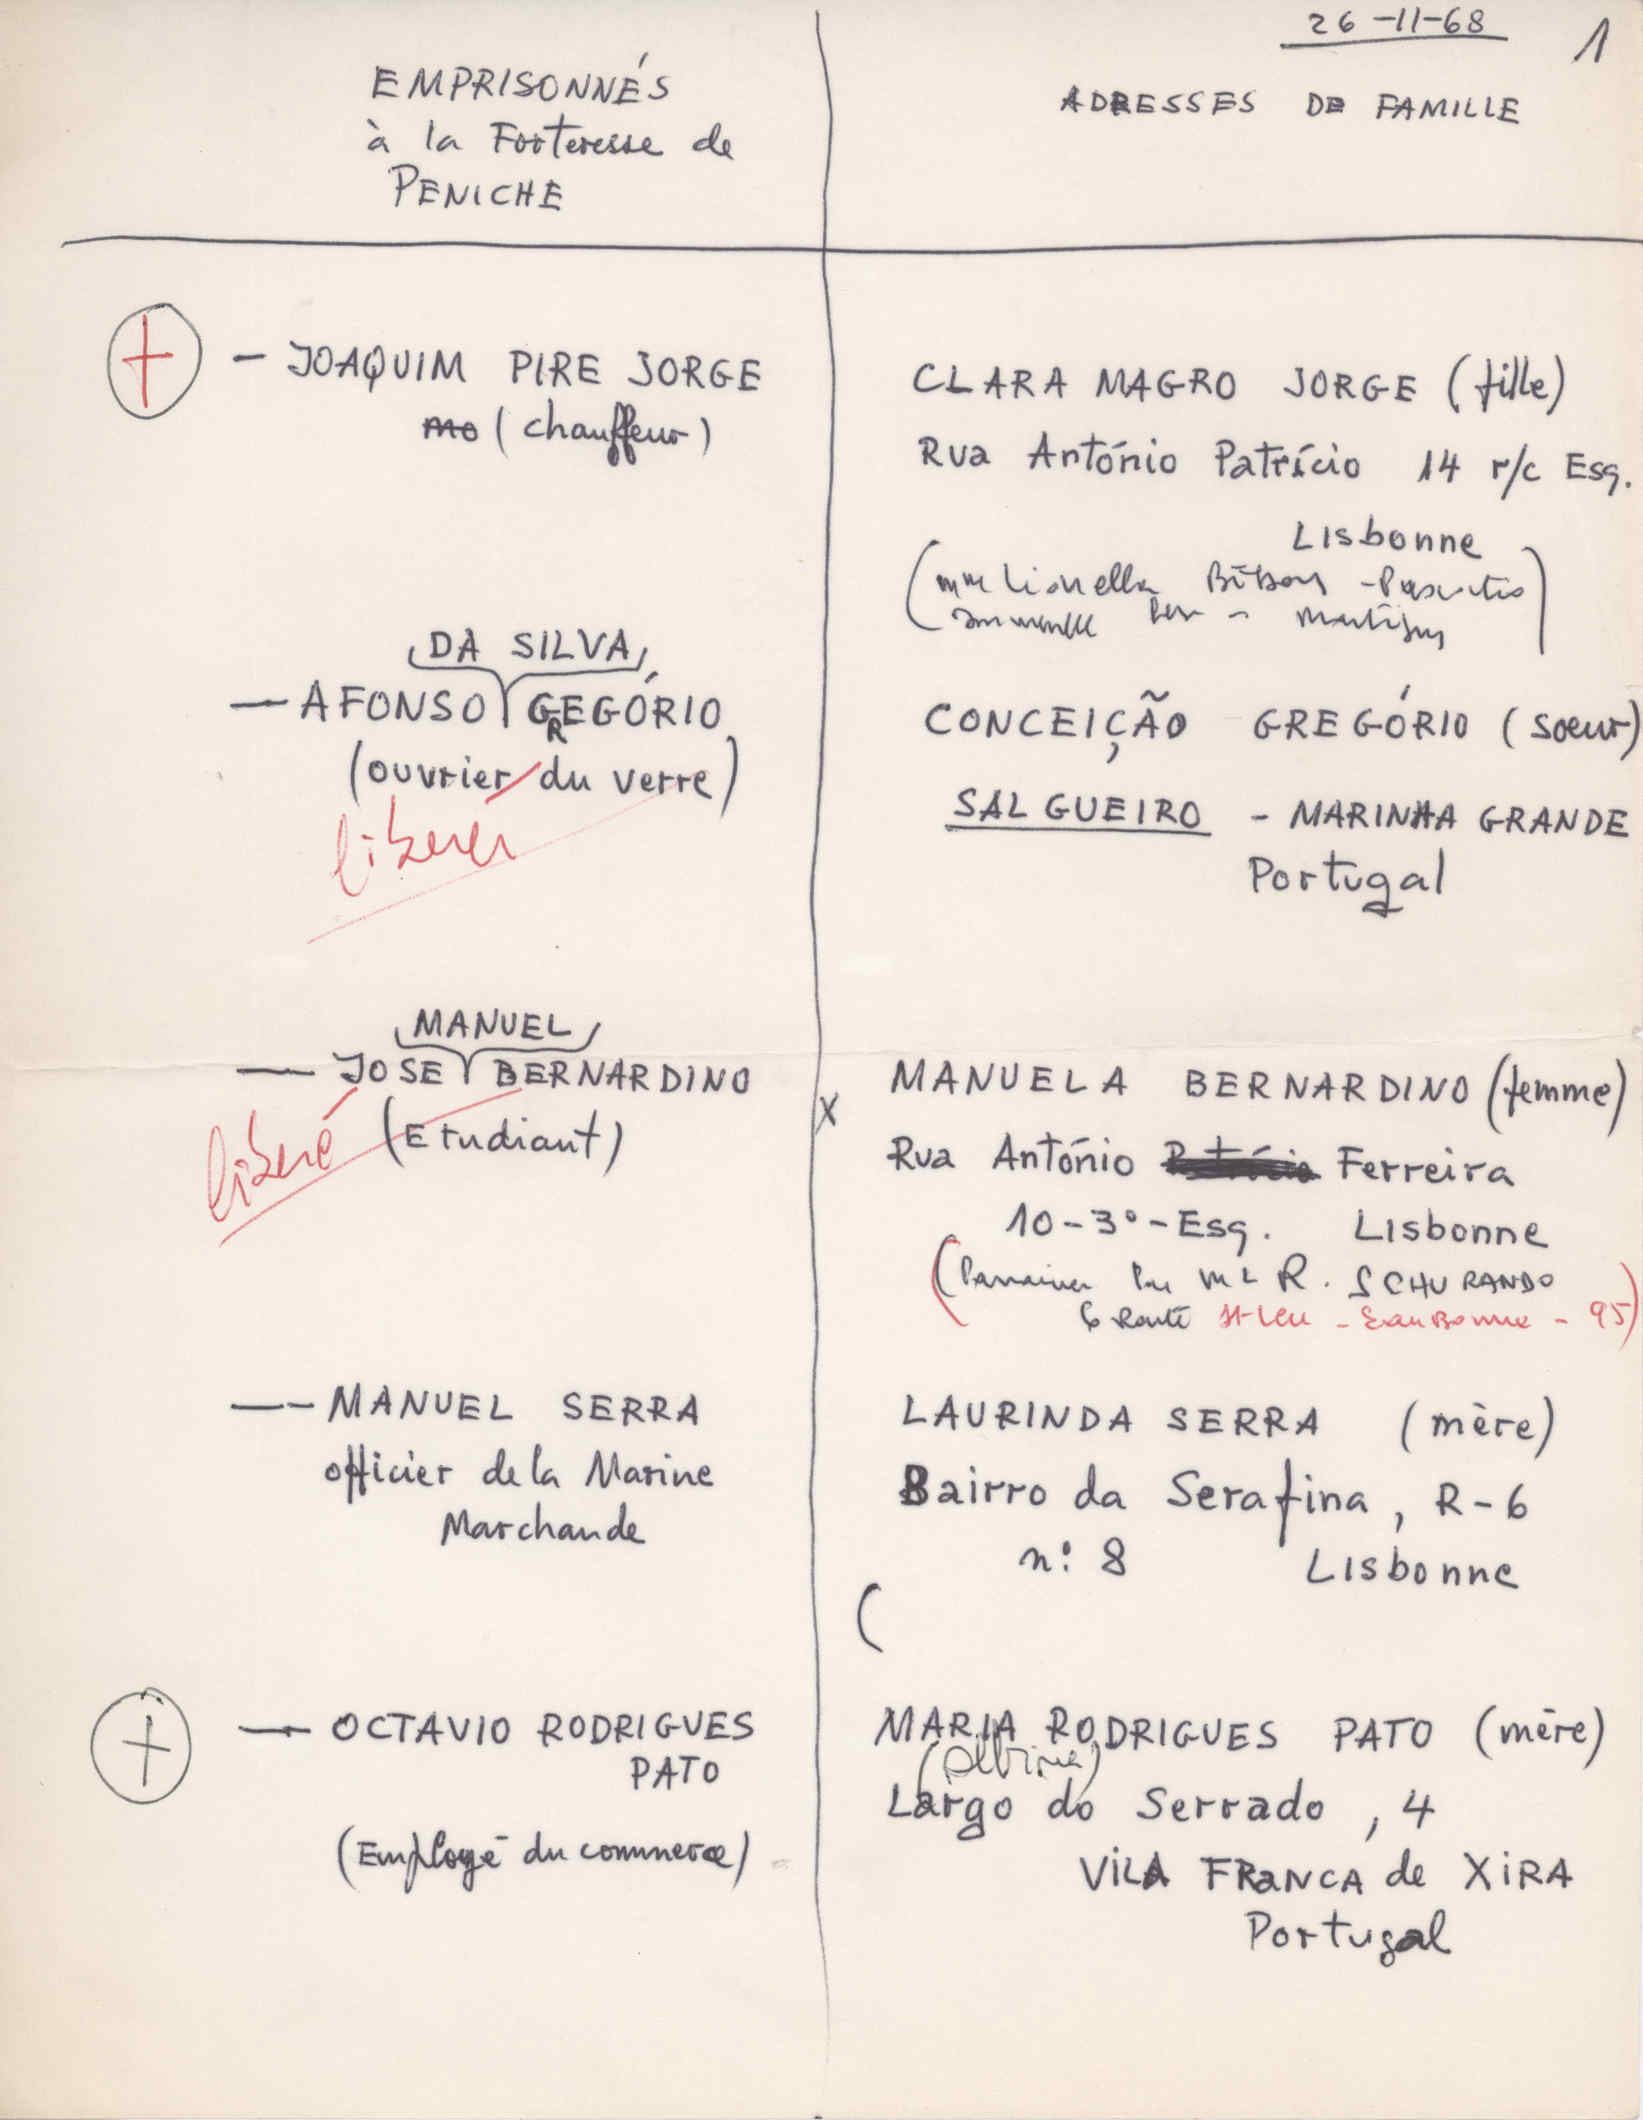 26-11-68
1
EMPRISONNÉS
à la Forteresse de
PENICHE
ADRESSES DE FAMILLE
— JOAQUIM PIRE JORGE
mo (chauffeur)
CLARA MAGRO JORGE (fille)
Rua António Patrício 14 r/c Esq.
Lisbonne
DA SILVA
— AFONSO GREGÓRIO
(ouvrier du verre)
liberer
CONCEIÇÃO GREGÓRIO (soeur)
SALGUEIRO - MARINHA GRANDE
Portugal
MANUEL
— JOSE BERNARDINO
(Etudiant)
liberé
x
MANUELA BERNARDINO (femme)
Rua António Patrício Ferreira
10-3º-Esq. Lisbonne
R. SCHURANDO
6 Route St-Leu - EauBonne - 95)
—- MANUEL SERRA
officier de la Marine
Marchande
LAURINDA SERRA (mère)
Bairro da Serafina, R-6
nº: 8 Lisbonne
(
— OCTAVIO RODRIGUES
PATO
(Employé du commerce)
MARIA RODRIGUES PATO (mère)
(Albina)
Largo do Serrado, 4
VILA FRANCA de XIRA
Portugal